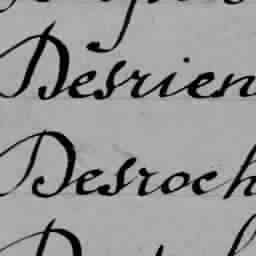 Desrien
Desroch